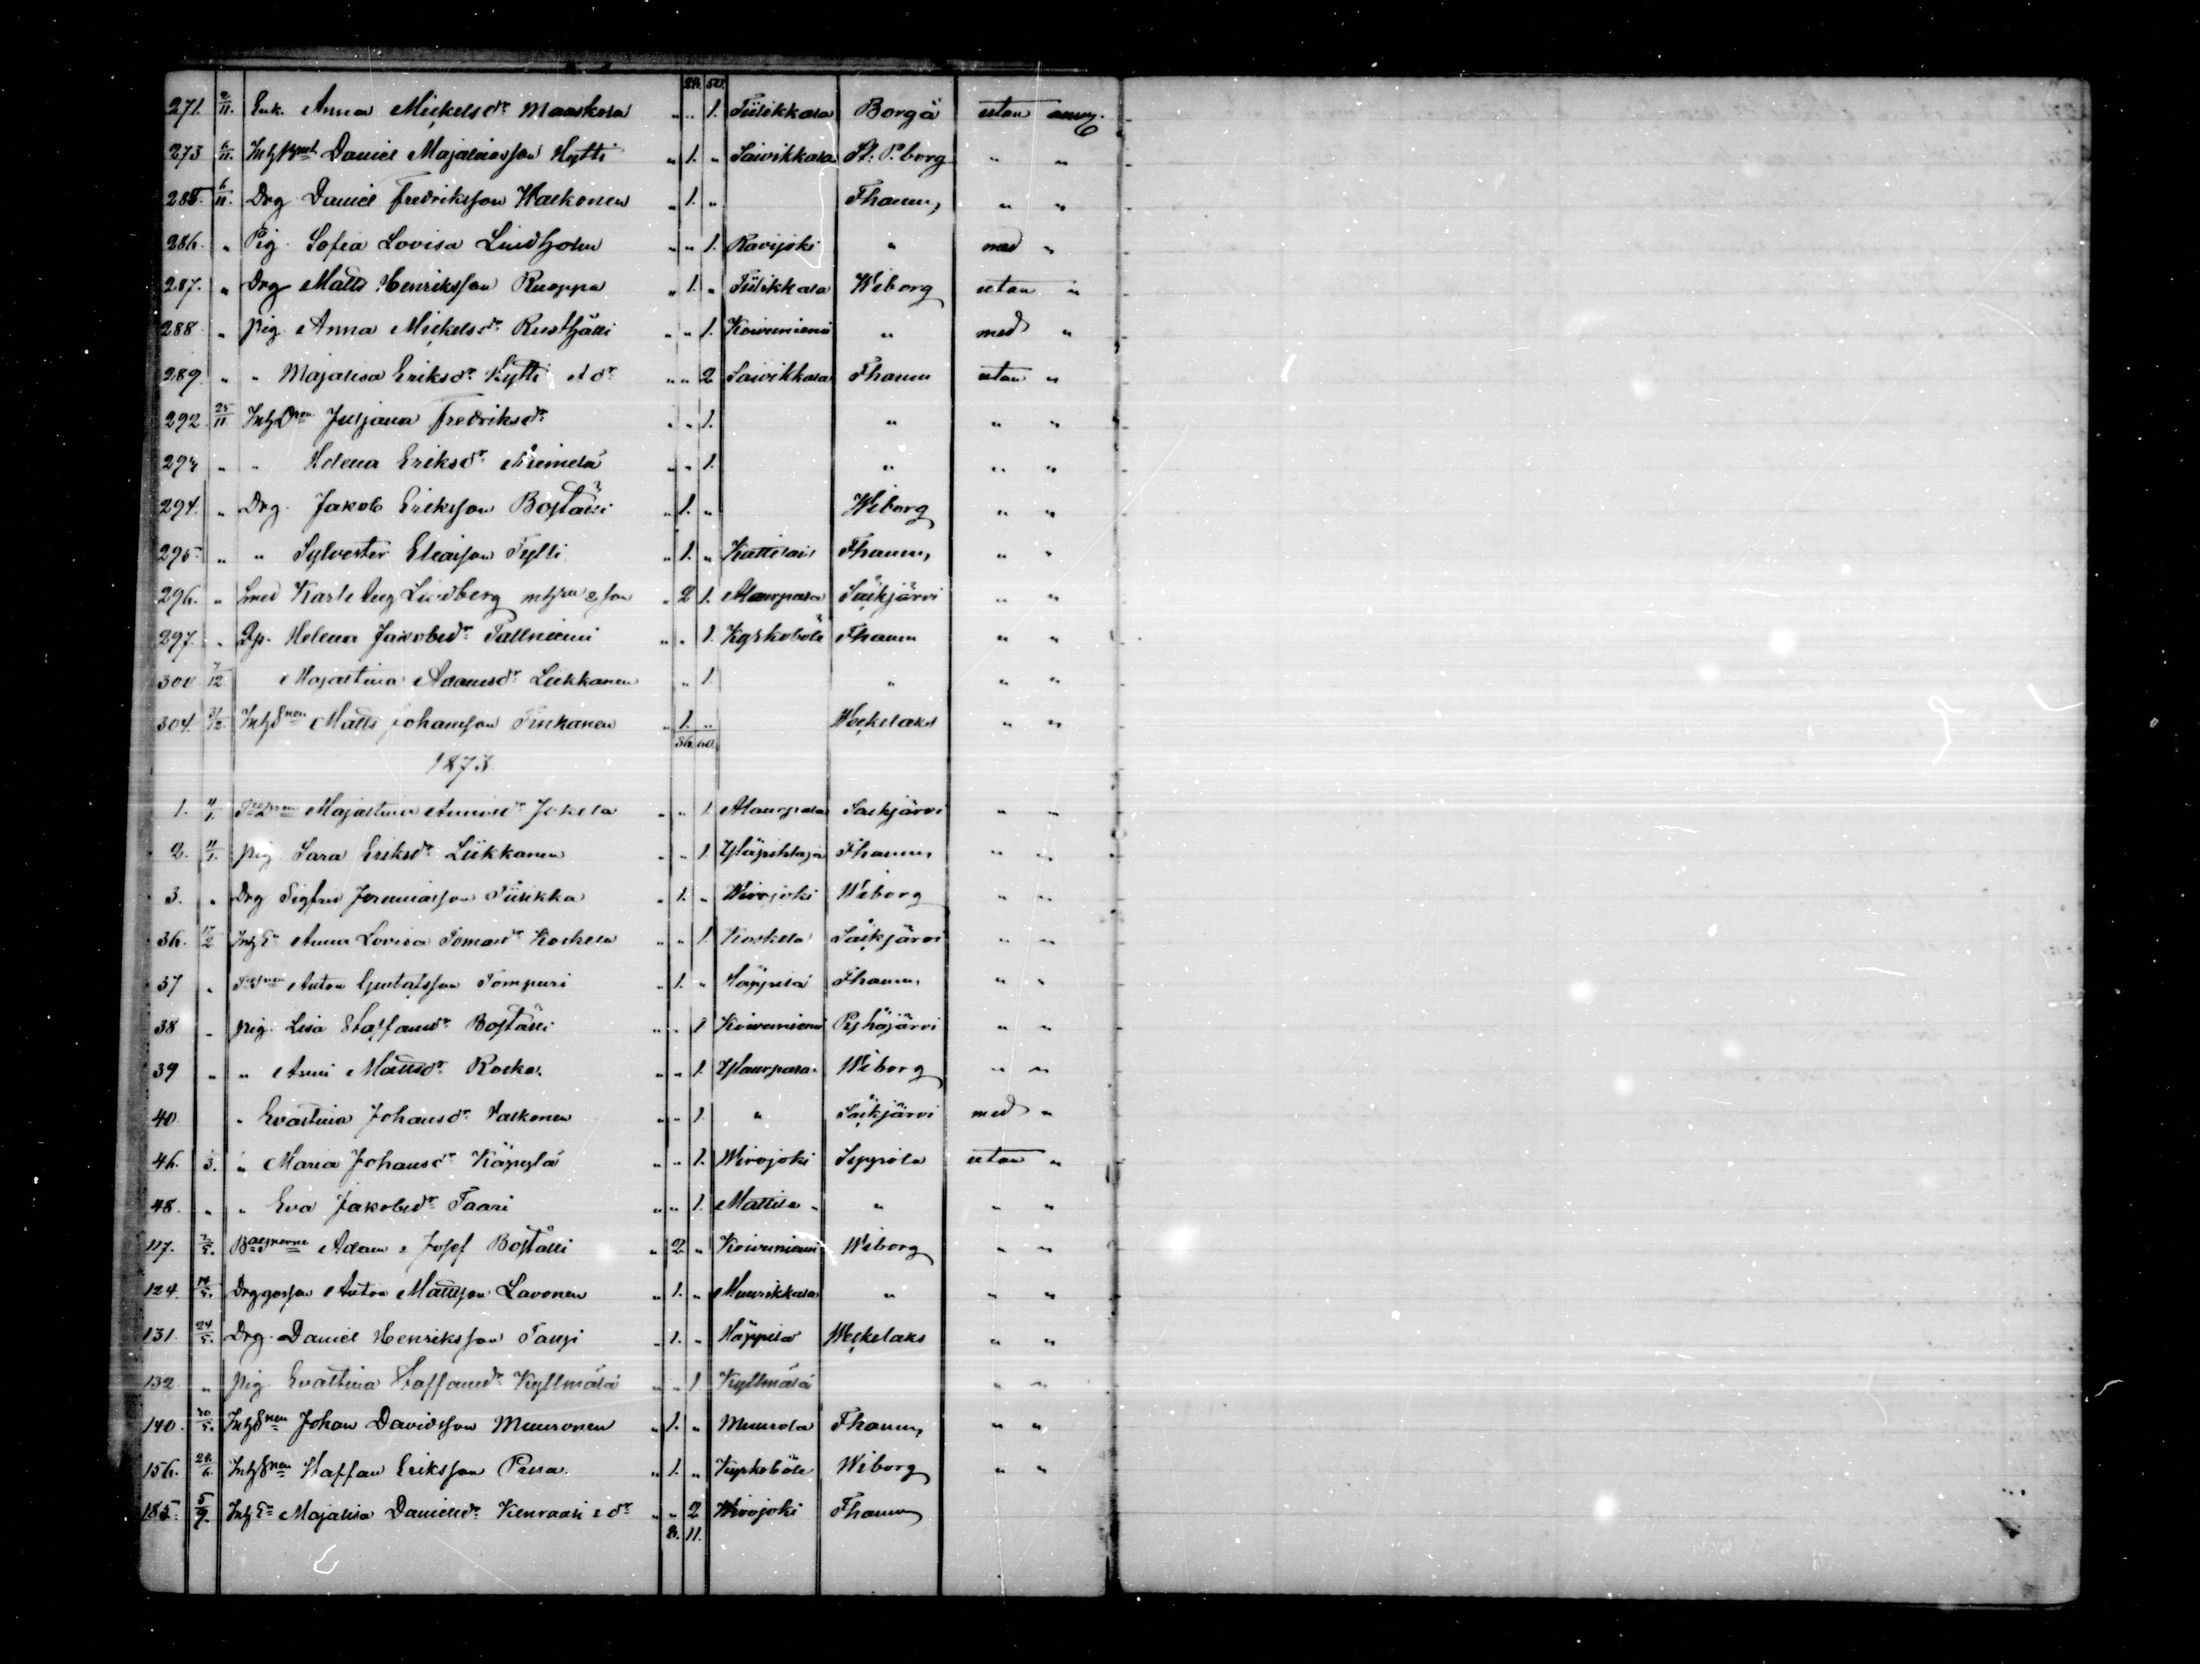 28. 50.
271. 2/11. Enk. Anna Mickelsdr Maaskola " " 1. Tiilikkala Borgå utan anm.
273 6/11. Daniel Majaliasson Hytti " 1. " Saivikkala St: P.borg " "
285. 6/11. Drg Daniel Fredriksson Walkonen " 1. " Fhamn, " "
286. " Pig. Sofia Lovisa Lindholm " " 1. Ravijoki " med "
287. " Drg Matts Henriksson Ruoppa " 1. " Tiilikkala Wiborg utan "
288 " pig Anna Mickelsdr Rusthålli " " 1. Koivuniemi " med "
289. " " Majalisa Eriksdr Hytti et dr " " 2 Saivikkala Fhamn utan "
292. 25/11 Juljana Fredriksdr " " 1. " " "
293 " " Helena Eriksdr Niemelä " " 1. " " "
294. " Drg. Jakob Eriksson Boställi " 1. " Wiborg " "
295. " " Sylvester Eliasson Tylli " 1. " Kattilais Fhamn, " "
296. " Smed Karl Aug Lindberg m h:u & son " 2 1. Alaurpala Säkjärvi " "
297. " Helena Jakobsdr Pallniemi " " 1. Kyrkoböle Fhamn " "
300 7/12 Majastina Adamsdr Liikkanen " 1. " " "
304. Matts Johansson Tinkanen " 1. " Weckelaks " "
36. 60.
1873
1. 4/1. Majastina Jokela " " 1. Alaurpala Säkjärvi " "
2. 11/1. pig. Sara Eriksdr Liikkanen " " 1. Yläpihlaja Fhamn, " "
3. " Drg Sigfrid Jeremiasson Tiilikka " 1. " Wirojoki Wiborg " "
36. 17/2 Anna Lovisa Tomasdr Koskela " " 1. Koskela Säkjärvi " "
37 " Anton Gustafsson Tompuri " 1. " Häppilä Fhamn, " "
38 " pig. Lisa Staffansdr Boställi " " 1 Koivuniemi Pyhäjärvi " "
39 " " Anni Mattsdr Rocka. " " 1. Ylaurpala Wiborg " "
40 " Evastina Johansdr Valkonen " " 1. " Säkjärvi med "
46. /3. " Maria Johansdr Käpylä " " 1. Wirojoki Sippola utan "
48. " " Eva Jakobsdr Taari " " 1. Mattila " " " "
117. 2/5. Adam & Josef Boställi " 2 " Koivuniemi Wiborg " "
124. 14/5. Drggossen Anton Mattsson Lavonen " 1. " Muurikkala " " "
131. 24/5. Drg. Daniel Henriksson " 1. " Häppilä Weckelaks " "
132 " pig. Evastina Staffansdr Kyllmälä " " 1 Kyllmälä " "
140. 30/5. Johan Davidsson Muuronen " 1. " Muurola Fhamn, " "
156. 24/6. Staffan Eriksson " 1. " Kyrkoböle Wiborg " "
185. 5/9. Majalisa Danielsdr Kenraali & dr " " 2 Wirojoki Fhamn
8. 11.